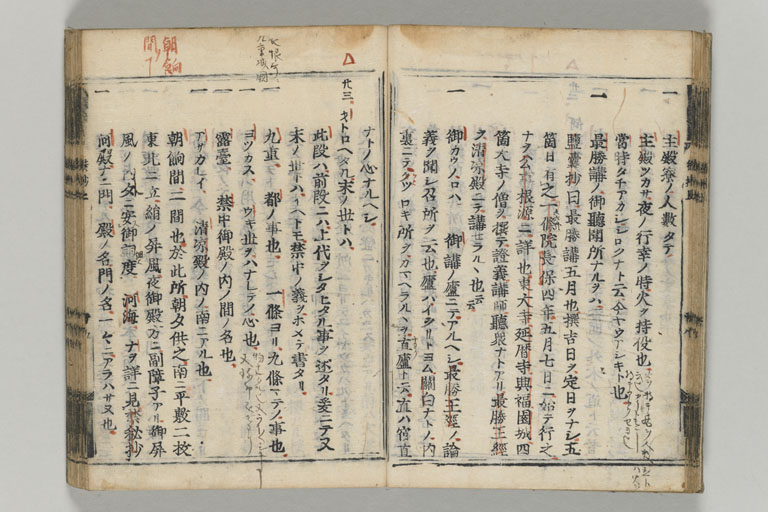 一 主殿寮ノ人數タテ
主殿ツカサ夜ノ行幸ノ時火ヲ持役也
官時タチアカシシロクナト云
一 最勝講ノ御聽聞所ナルヲハ
壒囊抄曰最勝講五月也撰吉日ヲ定日ヲナシ五
箇日有之一條院長保四年五月七日ニ始テ行之
ナヲ公事根源ニ詳也東大寺延暦寺興福園城四
箇大寺ノ僧ヲ撰テ證義講師聽衆ナトアリ最勝王經
ヲ清涼殿ニテ講セラルヽ也云云
一 御カウノロハ 御講ノ廬ニテアルヘシ最勝王經ノ論
義ヲ聞シ召所ヲ云也廬ハイホリトヨム關白ナトノ内
裏ニテクツロキ所ヲカマヘラルヽヲ直廬ト云直ハ宿直
ナトノ心ナルヘシ
廿三 ヲトロヘタル末ノ世トハ
此段ハ前段ニハ上代ヲシタヒタル事ヲ述タリ爰ニテ又
末ノ世トハイヘトモ禁中ノ義ヲホメテ書タリ
一 九重 都ノ事也 一條ヨリ九條マテノ事也
一 ヨツカヌ ウキ世ヲハナレテノ心也
一 露臺 禁中御殿ノ内ノ間ノ名也
一 アサカレイ 清涼殿ノ内ノ南ニアル也
朝餉間二間也於此所朝夕供之南ニ平敷二枚
東北ニ立絹ノ屏風夜御殿カニ副障子アル御屏
風ノ内タニ安御調度 河海 ナヲ詳ニ見禁秘抄
一 何殿何門 殿ノ名門ノ名一々ニアラハサヌ也
朝餉
間